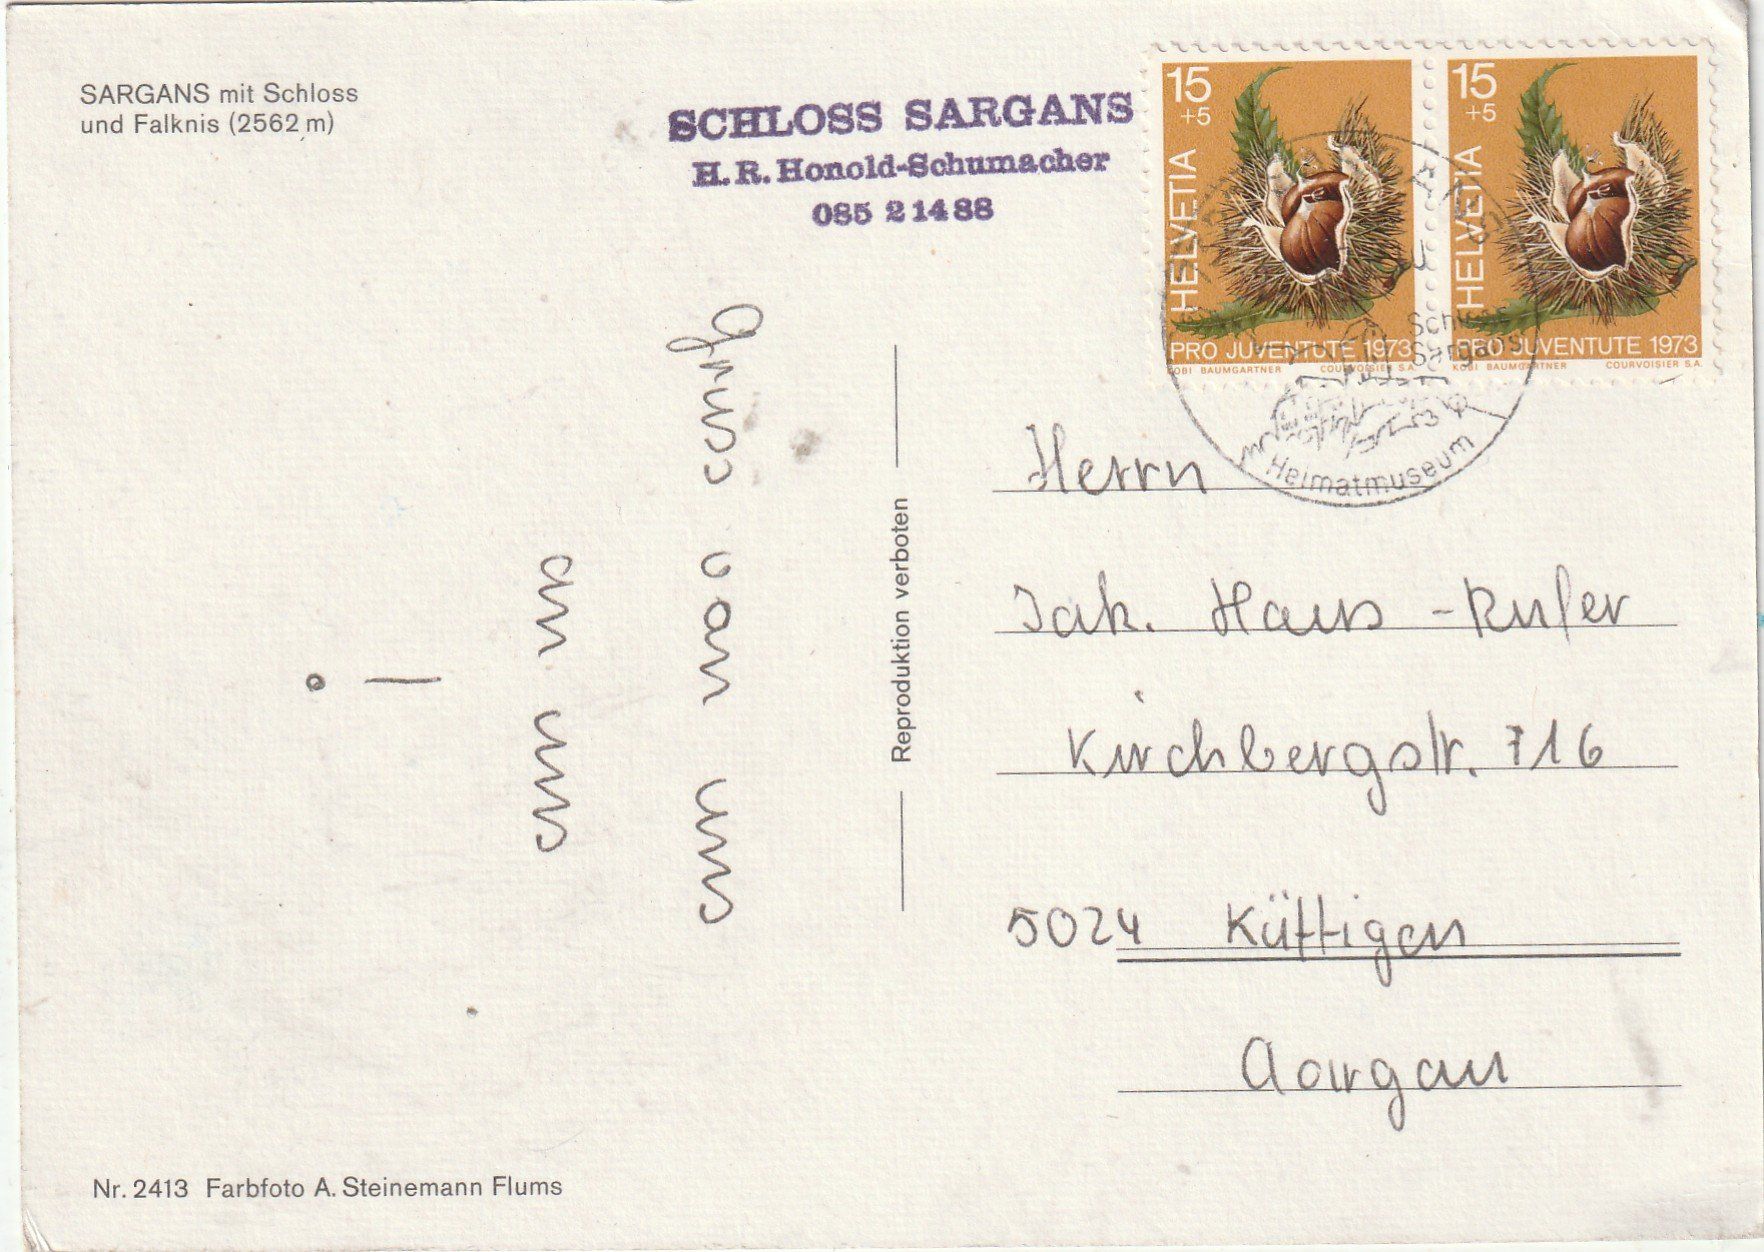 SARGANS mit Schloss
und Falknis (2562 m)
SCHLOSS SARGANS
H. R. Honold-Schumacher
085 2 14 88
15
+5
HELVETIA
PRO JUVENTUTE 1973
KOBI BAUMGARTNER COURVOISIER S.A.
15
+5
HELVETIA
PRO JUVENTUTE 1973
KOBI BAUMGARTNER COURVOISIER S.A.
Schloss
Sargans
Heimatmuseum
Reproduktion verboten
Herrn
Jak. Haus-Rufer
Kirchbergstr. 716
5024 Küttigen
Aargau
Nr. 2413 Farbfoto A. Steinemann Flums